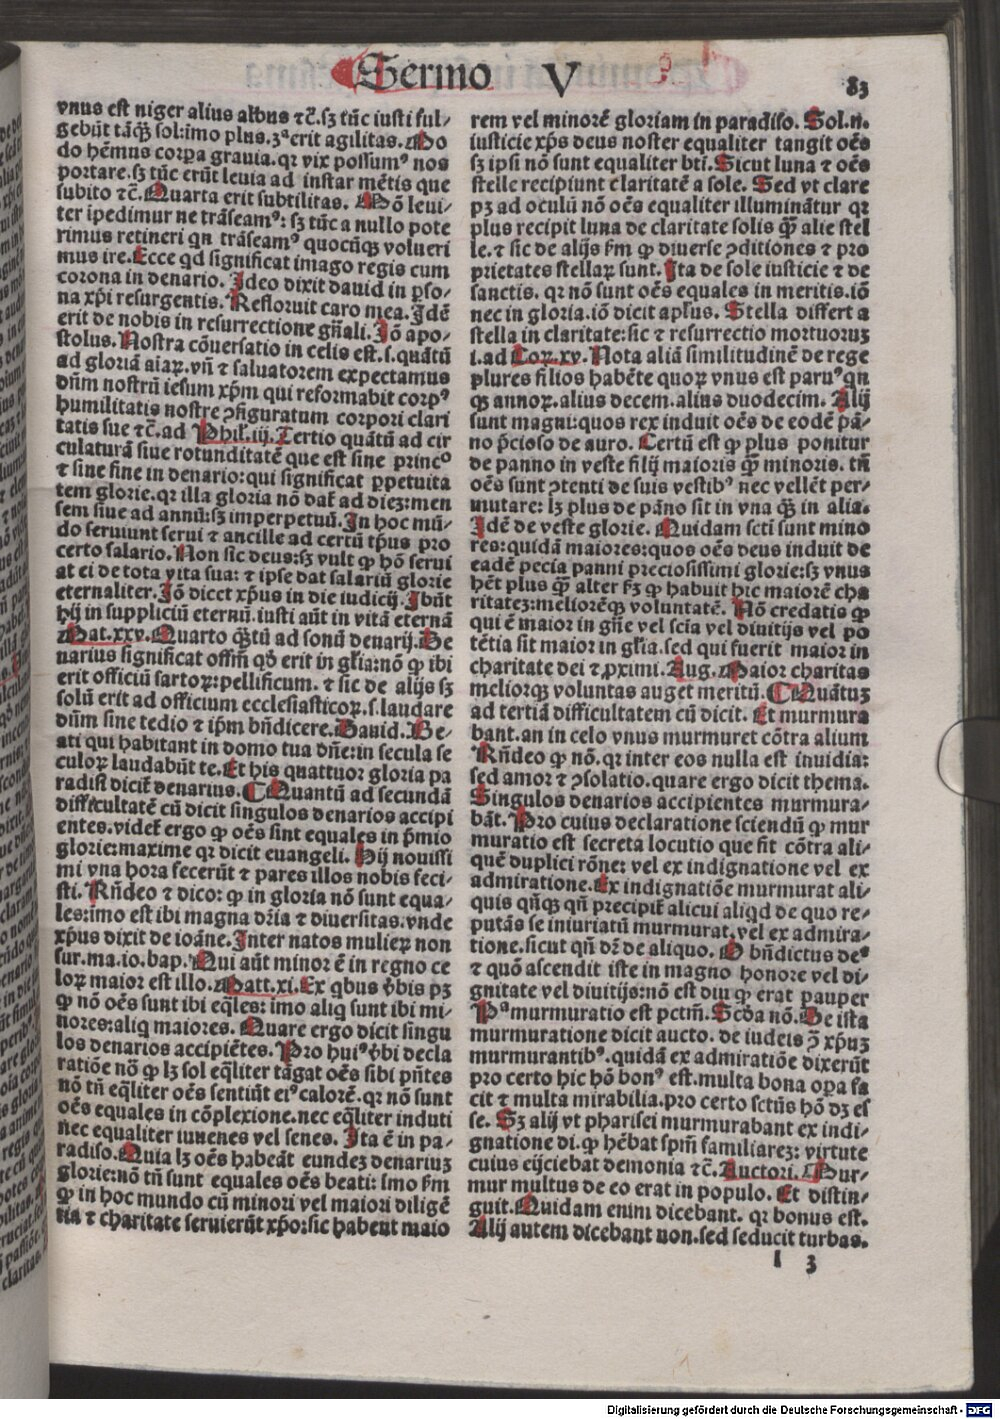 Sermo V
83
vnus est niger alius albus ⁊c̃. sꝫ tũc iusti ful⸗
gebũt tãq̃ꝫ sol: imo plus. 3ᵃ erit agilitas. Mo
do hẽmus corꝑa grauia. qꝛ vix possumꝰ nos
portare. sꝫ tũc erũt leuia ad instar mẽtis que
subito ⁊c̃. Quarta erit subtilitas. Mõ leui⸗
ter ipedimur ne trãseamꝰ: sꝫ tũc a nullo pote
rimus retineri qn trãseamꝰ quocũqꝫ volueri
mus ire. Ecce qd significat imago regis cum
corona in denario. Ideo dixit dauid in ꝑso⸗
na xp̃i resurgentis. Refloruit caro mea. Idẽ
erit de nobis in resurrectione gñali. Iõ apo⸗
stolus. Nostra cõuersatio in celis est. s. quãtũ
ad gloriã aĩaꝝ. vñ ⁊ saluatorem expectamus
dñm nostrũ iesum xp̃m qui reformabit corpꝰ
humilitatis nostre ꝯfiguratum corpori clari
tatis sue ⁊c̃. ad Phil̃. iij. Tertio quãtũ ad cir
culaturã siue rotunditatẽ que est sine princº
⁊ sine fine in denario: qui significat ꝑpetuita
tem glorie. qꝛ illa gloria nõ dat̃ ad dieꝫ: men
sem siue ad annũ: sꝫ imperpetuũ. In hoc mũ⸗
do seruiunt serui ⁊ ancille ad certũ tp̃us pro
certo salario. Non sic deus: sꝫ vult ꝙ hõ serui
at ei de tota vita sua: ⁊ ipse dat salariũ glorie
eternaliter. Iõ dicet xp̃us in die iudicij. Ibũt
hij in suppliciũ eternũ. iusti aũt in vitã eternã
Mat. xxv. Quarto q̃ꝫtũ ad sonũ denarij. De
narius significat offm̃ qď erit in gľia: nõ ꝙ ibi
erit officiũ sartoꝝ: pellificum. ⁊ sic de alijs sꝫ
solũ erit ad officium ecclesiasticoꝝ. s. laudare
dñm sine tedio ⁊ ip̃m bñdicere. Dauid. Be⸗
ati qui habitant in domo tua dñe: in secula se
culoꝝ laudabũt te. Et his quattuor gloria pa
radisi dicit̃ denarius. ¶ Quantũ ad secundã
difficultatẽ cũ dicit singulos denarios accipi
entes. videt̃ ergo ꝙ oẽs sint equales in p̃mio
glorie: maxime qꝛ dicit euangeli. Hij nouissi
mi vna hora fecerũt ⁊ pares illos nobis feci⸗
sti. Rñdeo ⁊ dico: ꝙ in gloria nõ sunt equa⸗
les: imo est ibi magna dr̃ia ⁊ diuersitas. vnde
xp̃us dixit de ioãne. Inter natos mulieꝝ non
sur. ma. io. bap. Qui aũt minor ẽ in regno ce
loꝝ maior est illo. Matt. xi. Ex qbus v̾bis pꝫ
ꝙ nõ oẽs sunt ibi eq̃les: imo aliq sunt ibi mi⸗
nores: aliq maiores. Quare ergo dicit singu
los denarios accipiẽtes. Pro huiꝰ v̾bi decla
ratiõe nõ ꝙ lꝫ sol eq̃liter tãgat oẽs sibi pñtes
nõ tñ eq̃liter oẽs sentiũt eiꝰ calorẽ. qꝛ nõ sunt
oẽs equales in cõplexione. nec eq̃liter induti
nec equaliter iuuenes vel senes. Ita ẽ in pa⸗
radiso. Quia lꝫ oẽs habeãt eundeꝫ denariuꝫ
glorie: nõ tñ sunt equales oẽs beati: imo fm̃
ꝙ in hoc mundo cũ minori vel maiori diligẽ
tia ⁊ charitate seruierũt xp̃o: sic habent maio
rem vel minorẽ gloriam in paradiso. Sol. n.
iusticie xp̃s deus noster equaliter tangit oẽs
sꝫ ipsi nõ sunt equaliter bti̇̃. Sicut luna ⁊ oẽs
stelle recipiunt claritatẽ a sole. Sed vt clare
pꝫ ad oculũ nõ oẽs equaliter illuminãtur qꝛ
plus recipit luna de claritate solis q̃ꝫ alie stel
le. ⁊ sic de alijs fm̃ ꝙ diuerse ꝯditiones ⁊ pro
prietates stellaꝝ sunt. Ita de sole iusticie ⁊ de
sanctis. qꝛ nõ sunt oẽs equales in meritis. iõ
nec in gloria. iõ dicit aplus. Stella differt a
stella in claritate: sic ⁊ resurrectio mortuoruꝫ
i. ad Coꝝ. xv. Nota aliã similitudinẽ de rege
plures filios habẽte quoꝝ vnus est paruꝰ qn
qꝫ annoꝝ. alius decem. alius duodecim. Alij
sunt magni: quos rex induit oẽs de eodẽ pã⸗
no p̃cioso de auro. Certũ est ꝙ plus ponitur
de panno in veste filij maioris q̃ꝫ minoris. tñ
oẽs sunt ꝯtenti de suis vestibꝰ nec vellẽt per⸗
mutare: lꝫ plus de pãno sit in vna q̃ꝫ in alia.
Idẽ de veste glorie. Quidam scti sunt mino
res: quidã maiores: quos oẽs deus induit de
eadẽ pecia panni preciosissimi glorie: sꝫ vnus
hẽt plus q̃ꝫ alter fꝫ ꝙ habuit hic maiorẽ cha
ritateꝫ: meliorẽqꝫ voluntatẽ. Nõ credatis ꝙ
qui ẽ maior in gñe vel scĩa vel diuitijs vel po
tẽtia sit maior in gľia. sed qui fuerit maior in
charitate dei ⁊ ꝓximi. Aug. Maior charitas
meliorqꝫ voluntas auget meritũ. ¶ Quãtuꝫ
ad tertiã difficultatem cũ dicit. Et murmura
bant. an in celo vnus murmuret cõtra alium
Rñdeo ꝙ nõ. qꝛ inter eos nulla est inuidia:
sed amor ⁊ ꝯsolatio. quare ergo dicit thema.
Singulos denarios accipientes murmura⸗
bãt. Pro cuius declaratione sciendũ ꝙ mur
muratio est secreta locutio que fit cõtra ali⸗
quẽ duplici rõne: vel ex indignatione vel ex
admiratione. Ex indignatiõe murmurat ali⸗
quis qñqꝫ qñ precipit̃ alicui aliqd de quo re⸗
putãs se iniuriatũ murmurat. vel ex admira⸗
tione. sicut qñ dꝛ̃ de aliquo. O bñdictus deꝰ
⁊ quõ ascendit iste in magno honore vel di⸗
gnitate vel diuitijs: nõ est diu ꝙ erat pauper
Pᵃ murmuratio est pctm̃. Scďa nõ. De ista
murmuratione dicit aucto. de iudeis ꝯ̃ xp̃uꝫ
murmurantibꝰ. quidã ex admiratiõe dixerũt
pro certo hic hõ bonꝰ est. multa bona oꝑa fa
cit ⁊ multa mirabilia. pro certo sctũs hõ dꝫ es
se. Sꝫ alij vt pharisei murmurabant ex indi⸗
gnatione di. ꝙ hẽbat spm̃ familiareꝫ: virtute
cuius eijciebat demonia ⁊c̃. Auctori. Mur⸗
mur multus de eo erat in populo. Et distin⸗
guit. Quidam enim dicebant. qꝛ bonus est.
Alij autem dicebant non. sed seducit turbas.
l 3
Digitalisierung gefördert durch die Deutsche Forschungsgemeinschaft - DFG